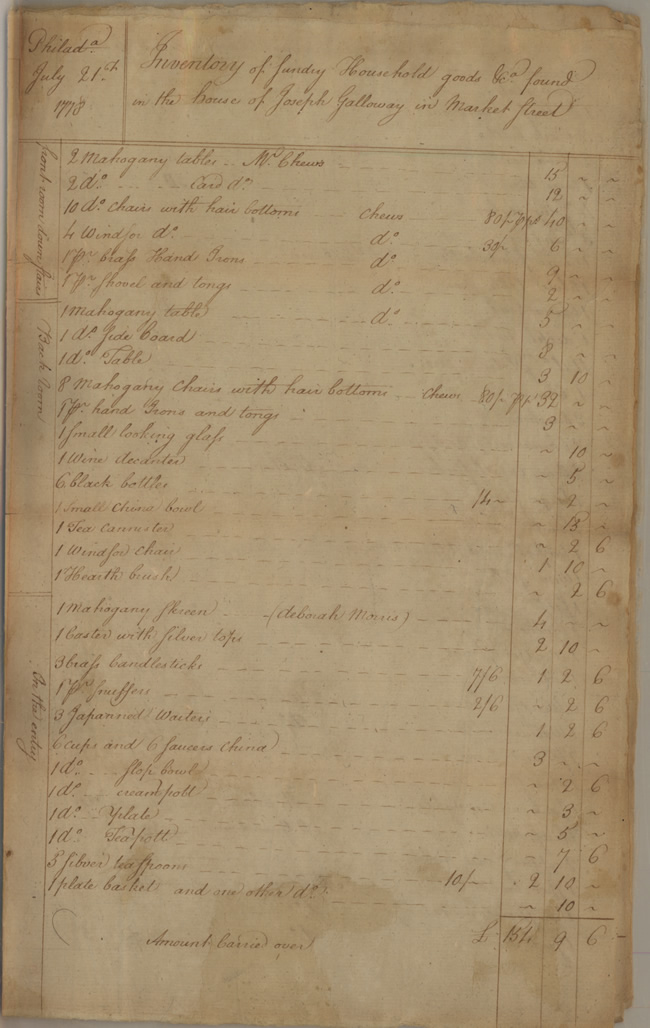 Philad.a
July 21.st
1778
Inventory of sundry Household goods &c.a found
in the house of Joseph Galloway in Market Street
front room down stairs
2 Mahogany tables .. Mr. Chews 15 ~ ~
2 d.o Card d.o 12 ~ ~
10 d.o Chairs with hair bottoms Chews 80/- p.r 40 ~ ~
4 Windsor d.o d.o 30/- 6 ~ ~
1 p.r brass Hand Irons d.o 9 ~ ~
1 p.r shovel and tongs d.o 2 ~ ~
1 Mahogany table d.o 5 ~ ~
Back room
1 d.o side board 8 ~ ~
1 d.o Table 3 10 ~
8 Mahogany Chairs with hair bottoms Chews 80/- p.r 32 ~ ~
1 p.r hand Irons and tongs 3 ~ ~
1 small looking glass ~ 10 ~
1 Wine decanter ~ 5 ~
6 black bottles 14 ~ ~ 2 ~
1 small China bowl ~ 15 ~
1 Tea cannister ~ 2 6
1 Windsor chair 1 10 ~
1 Hearth brush ~ 2 6
On the entry
1 Mahogany Skreen (deborah Morris) 4 ~ ~
1 Caster with silver tops 2 10 ~
3 brass Candlesticks 7/6 1 2 6
1 p.r snuffers 2/6 ~ 2 6
3 Japanned Waiters 1 2 6
6 cups and 6 saucers China 3 ~ ~
1 d.o slop bowl ~ 2 6
1 d.o cream pott ~ 3 ~
1 d.o Plate ~ 5 ~
1 d.o Tea pott ~ 7 6
5 silver tea spoons 10/- 2 10 ~
1 plate basket and one other d.o ~ 10 ~
Amount Carried over £ 154 9 6